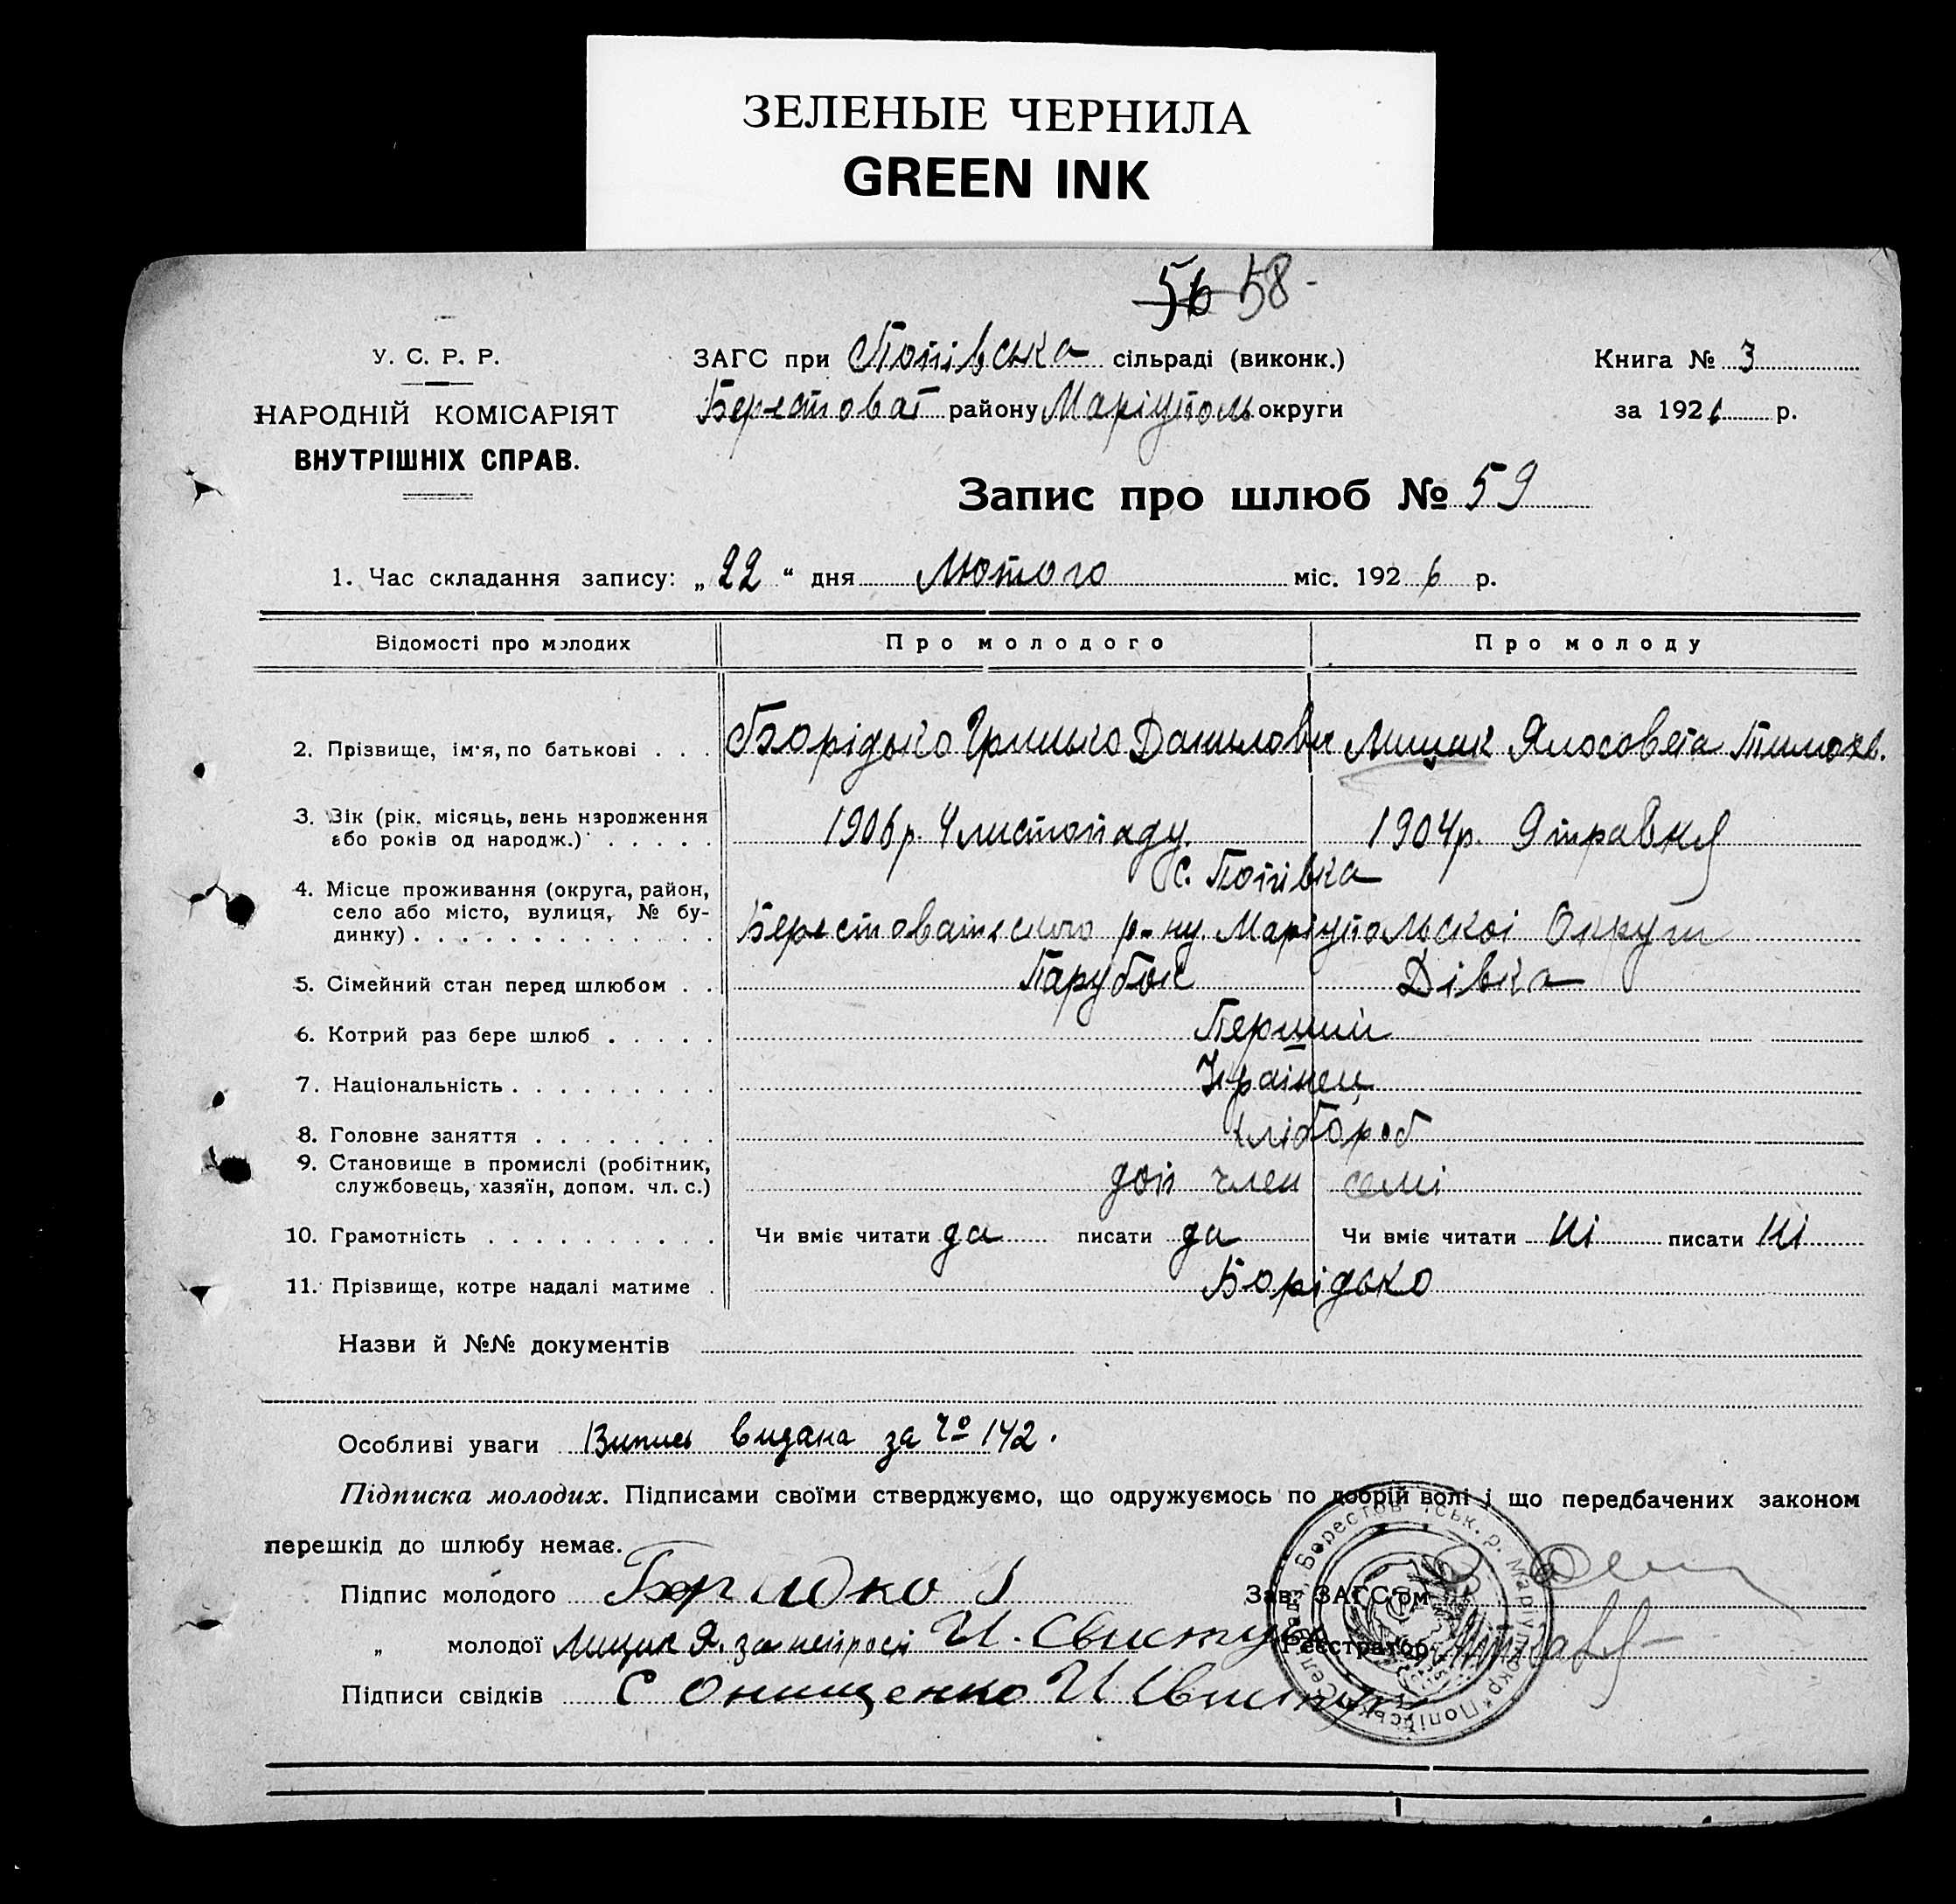 ЗЕЛЕНЫЕ ЧЕРНИЛА
GREEN INK
56 58
У. С. Р. Р.
НАРОДНІЙ КОМІСАРІЯТ
ВНУТРІШНІХ СПРАВ.
ЗАГС при Попівська сільраді (виконк.)
Берестоват району Маріуполь округи
Книга № 3
за 1926 р.
Запис про шлюб № 59
1. Час складання запису: „22“ дня Лютого міс. 1926 р.
Відомості про молодих Про молодого Про молоду
2. Прізвище, ім'я, по батькові . . . Борідько Грицько Данилови Лицик Ялосовета Тимохв.
3. Вік (рік, місяць, день народження
або років од народж.) . . . . . 1906 р. 4 листопаду. 1904 р. 9 травня
с. Попівка
4. Місце проживання (округа, район,
село або місто, вулиця, № бу-
динку) . . . . . . . . . . . . . Берестоватського р-ну. Маріупольскоі Округи
5. Сімейний стан перед шлюбом . . Парубок Дівка
6. Котрий раз бере шлюб . . . . . Перший
7. Національність . . . . . . . . . Украінец
8. Головне заняття . . . . . . . . хлібороб
9. Становище в промислі (робітник,
службовець, хазяїн, допом. чл. с.) доп член семі
10. Грамотність . . . . . . . . . . Чи вміє читати да писати да Чи вміє читати ні писати ні
11. Прізвище, котре надалі матиме . Борідько
Назви й №№ документів
Особливі уваги Випись видана за № 142.
Підписка молодих. Підписами своїми стверджуємо, що одружуємось по добрій волі і що передбачених законом
перешкід до шлюбу немає.
Підпис молодого Боридко
Зав. ЗАГС'ом
„ молодої Лицик Я. за неіпросі И. Свистун
Реєстратор
Підписи свідків С Онищенко И Свистун